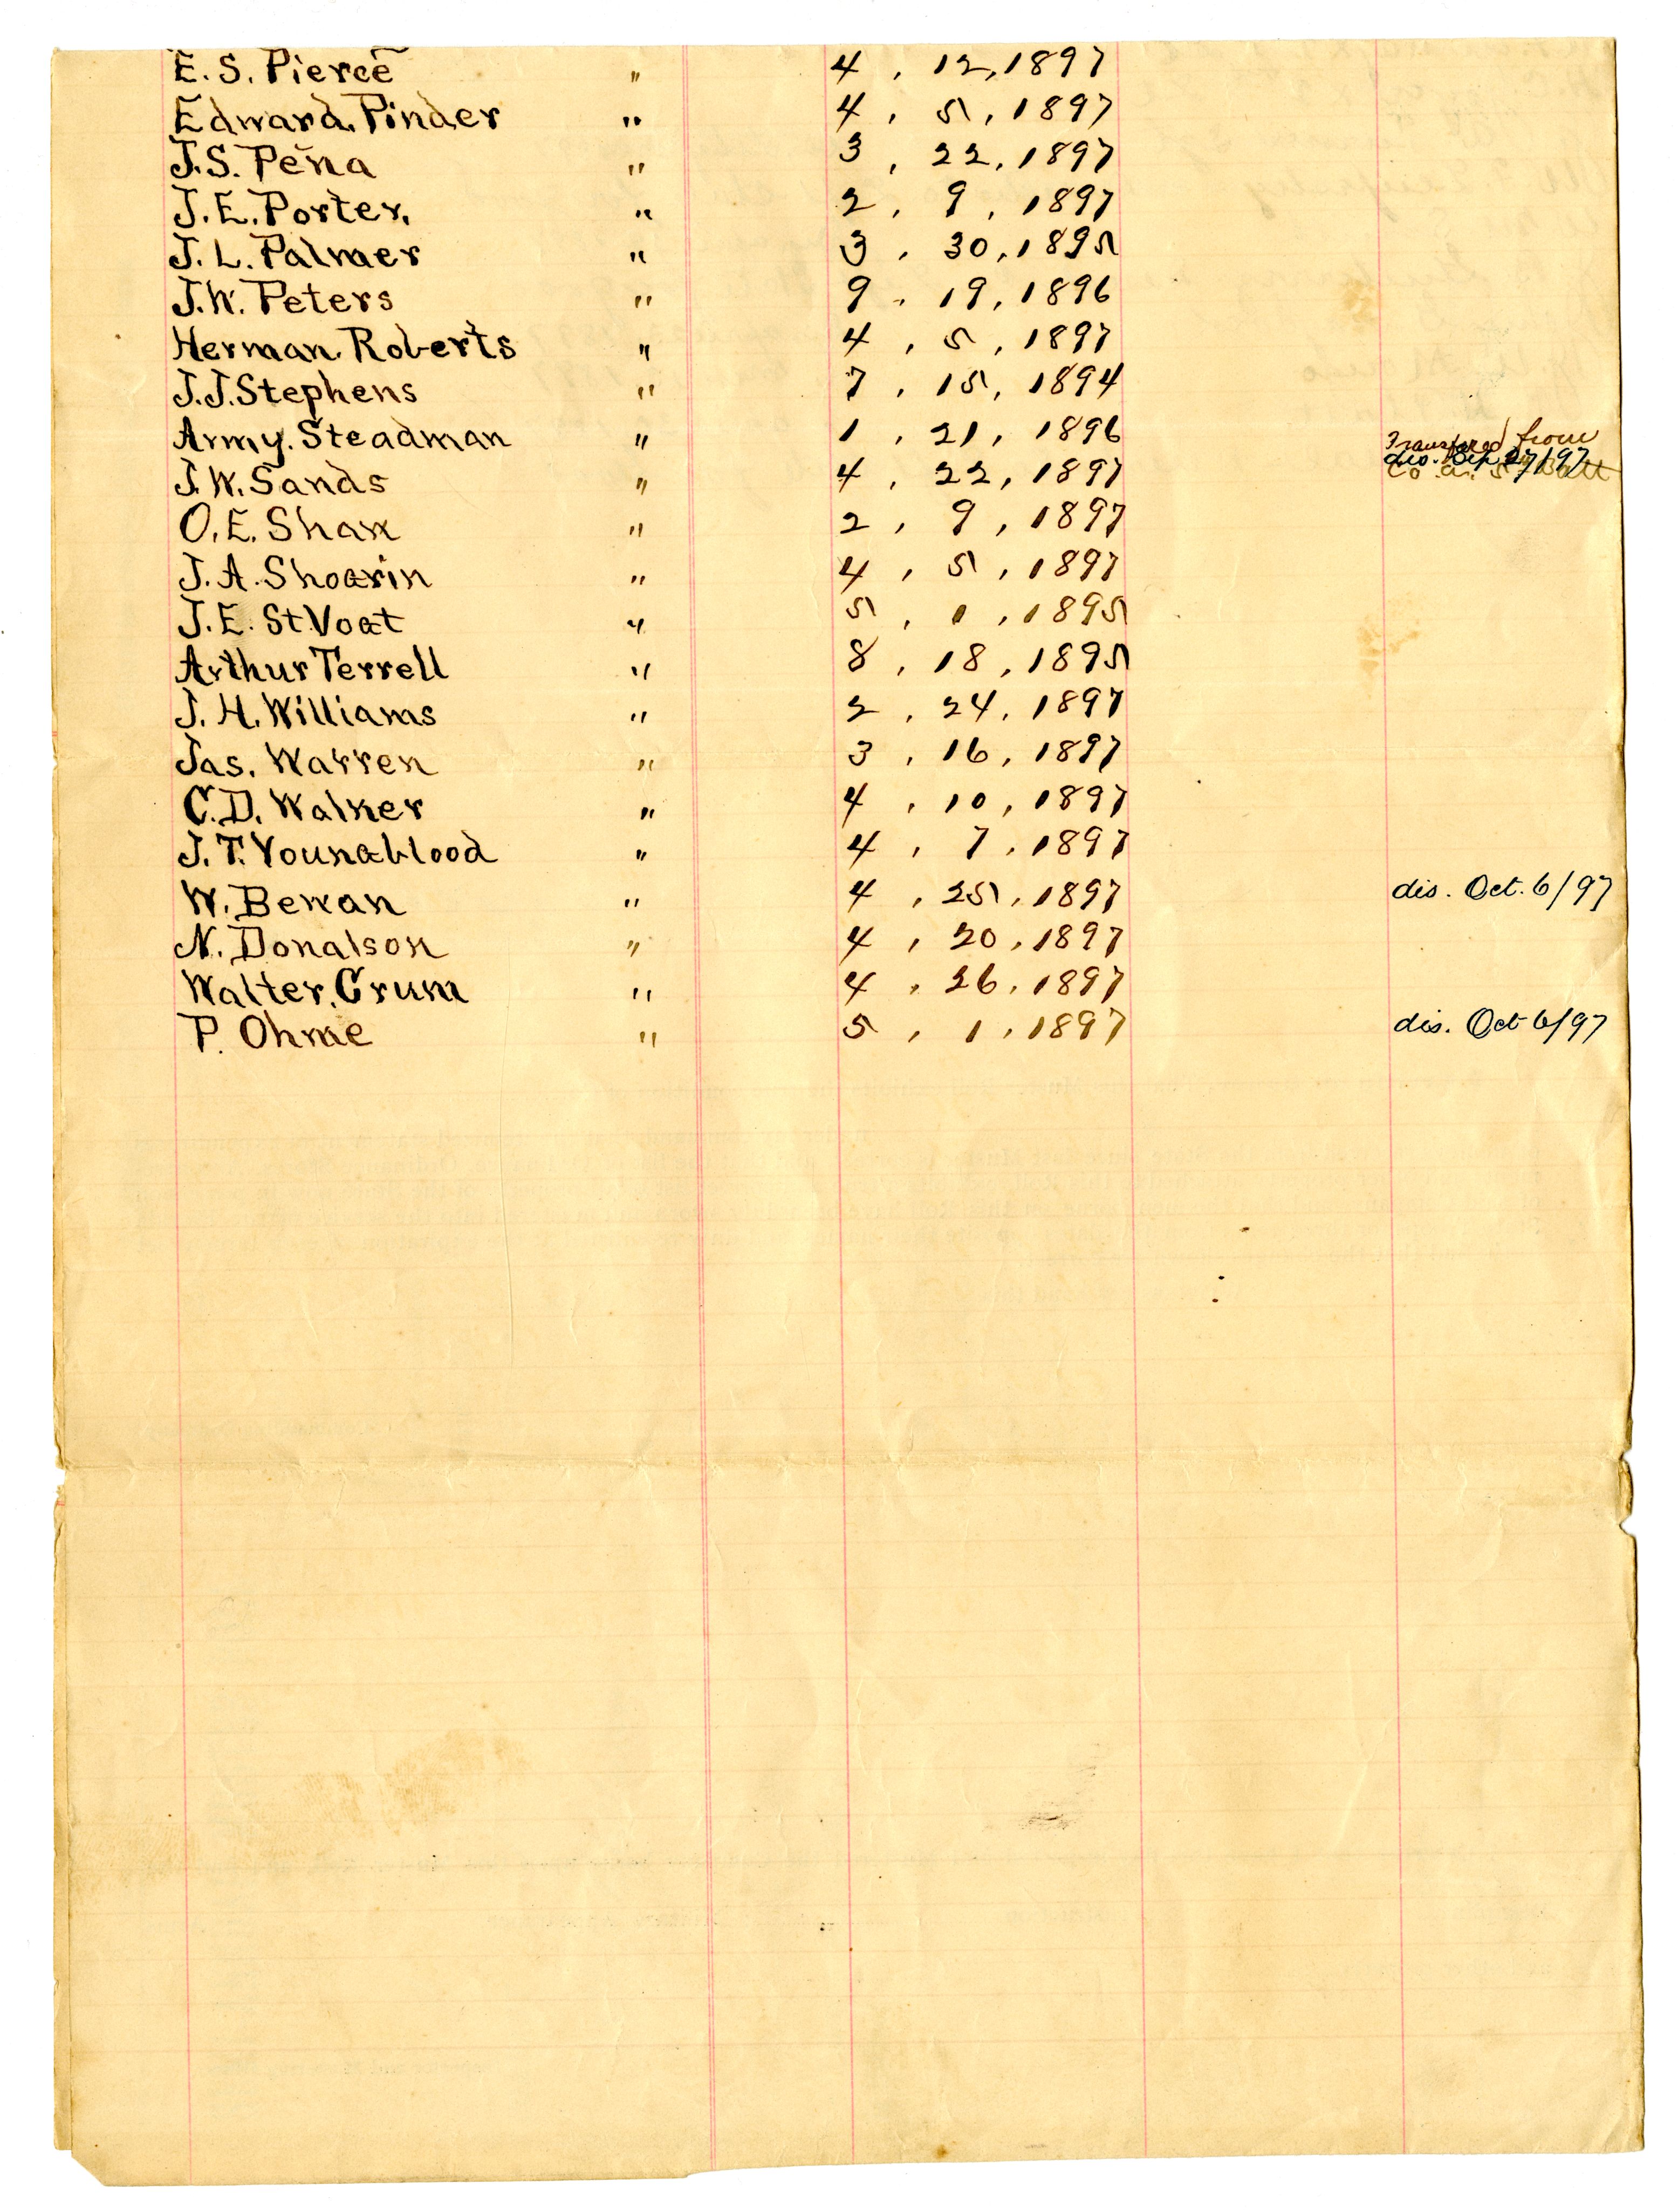 E. S. Pierce " 4 , 12, 1897
Edward. Pinder " 4 , 5, 1897
J. S. Pena " 3 , 22, 1897
J. E. Porter, " 2 , 9, 1897
J. L. Palmer " 3 , 30, 1895
J. W. Peters " 9 , 19, 1896
Herman. Roberts " 4 , 5, 1897
J. J. Stephens " 7 , 15, 1894
Army. Steadman " 1 , 21, 1896
Transfered from
J. W. Sands " 4 , 22, 1897 dis. Sep 27/97
Co. a. Batt
O. E. Shaw " 2 , 9, 1897
J. A. Shoarin " 4 , 5, 1897
J. E. St. Voat " 5 , 1, 1895
Arthur Terrell " 8 , 18, 1895
J. H. Williams " 2 , 24, 1897
Jas. Warren " 3 , 16, 1897
C. D. Walker " 4 , 10, 1897
J. T. Youngblood " 4 , 7, 1897
W. Bewan " 4 , 25, 1897 dis. Oct. 6/97
N. Donalson " 4 , 20, 1897
Walter. Crum " 4 , 26, 1897
P. Ohme " 5 , 1, 1897 dis. Oct 6/97